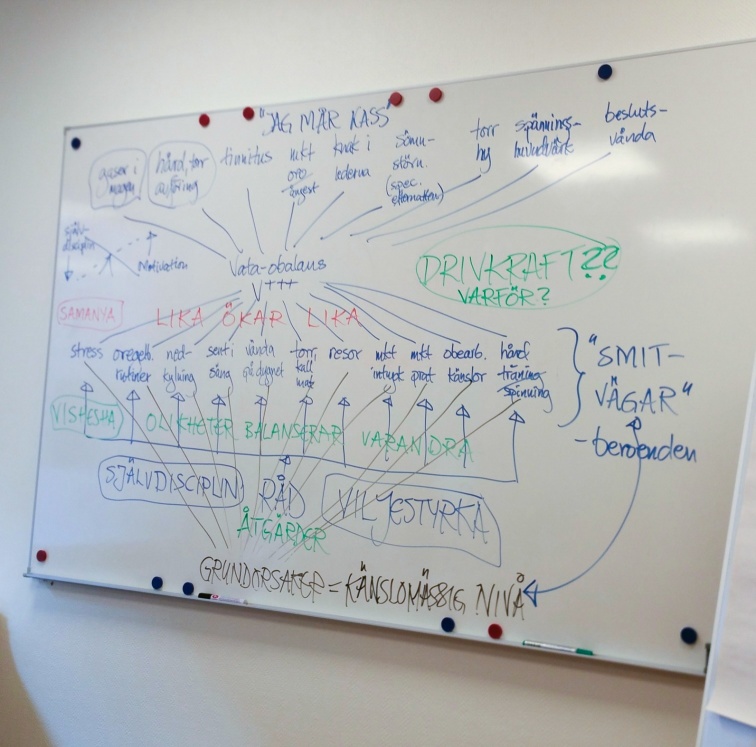 "JAG MÅR KASS"
gaser i
magen
hård, torr
avföring
tinnitus
mkt
oro
ångest
knak i
lederna
sömn-
störn.
(spec.
eftermatten)
torr
hy
spännings-
huvudvärk
besluts-
vånda
själv-
disciplin
Motivation
Vata-obalans
V+++
DRIVKRAFT??
VARFÖR?
SAMANYA
LIKA ÖKAR LIKA
stress
oregelb.
rutiner
ned-
kylning
sent i
säng
vända
på dygnet
torr,
kall
mat
resor
mkt
intryck
mkt
prat
obearb.
känslor
hård
träning
spinning
"SMIT-
VÄGAR"
-beroenden
VISHESHA
OLIKHETER BALANSERAR VARANDRA
SJÄLVDISCIPLIN
RÅD
VILJESTYRKA
ÅTGÄRDER
GRUNDORSAKER = KÄNSLOMÄSSIG NIVÅ